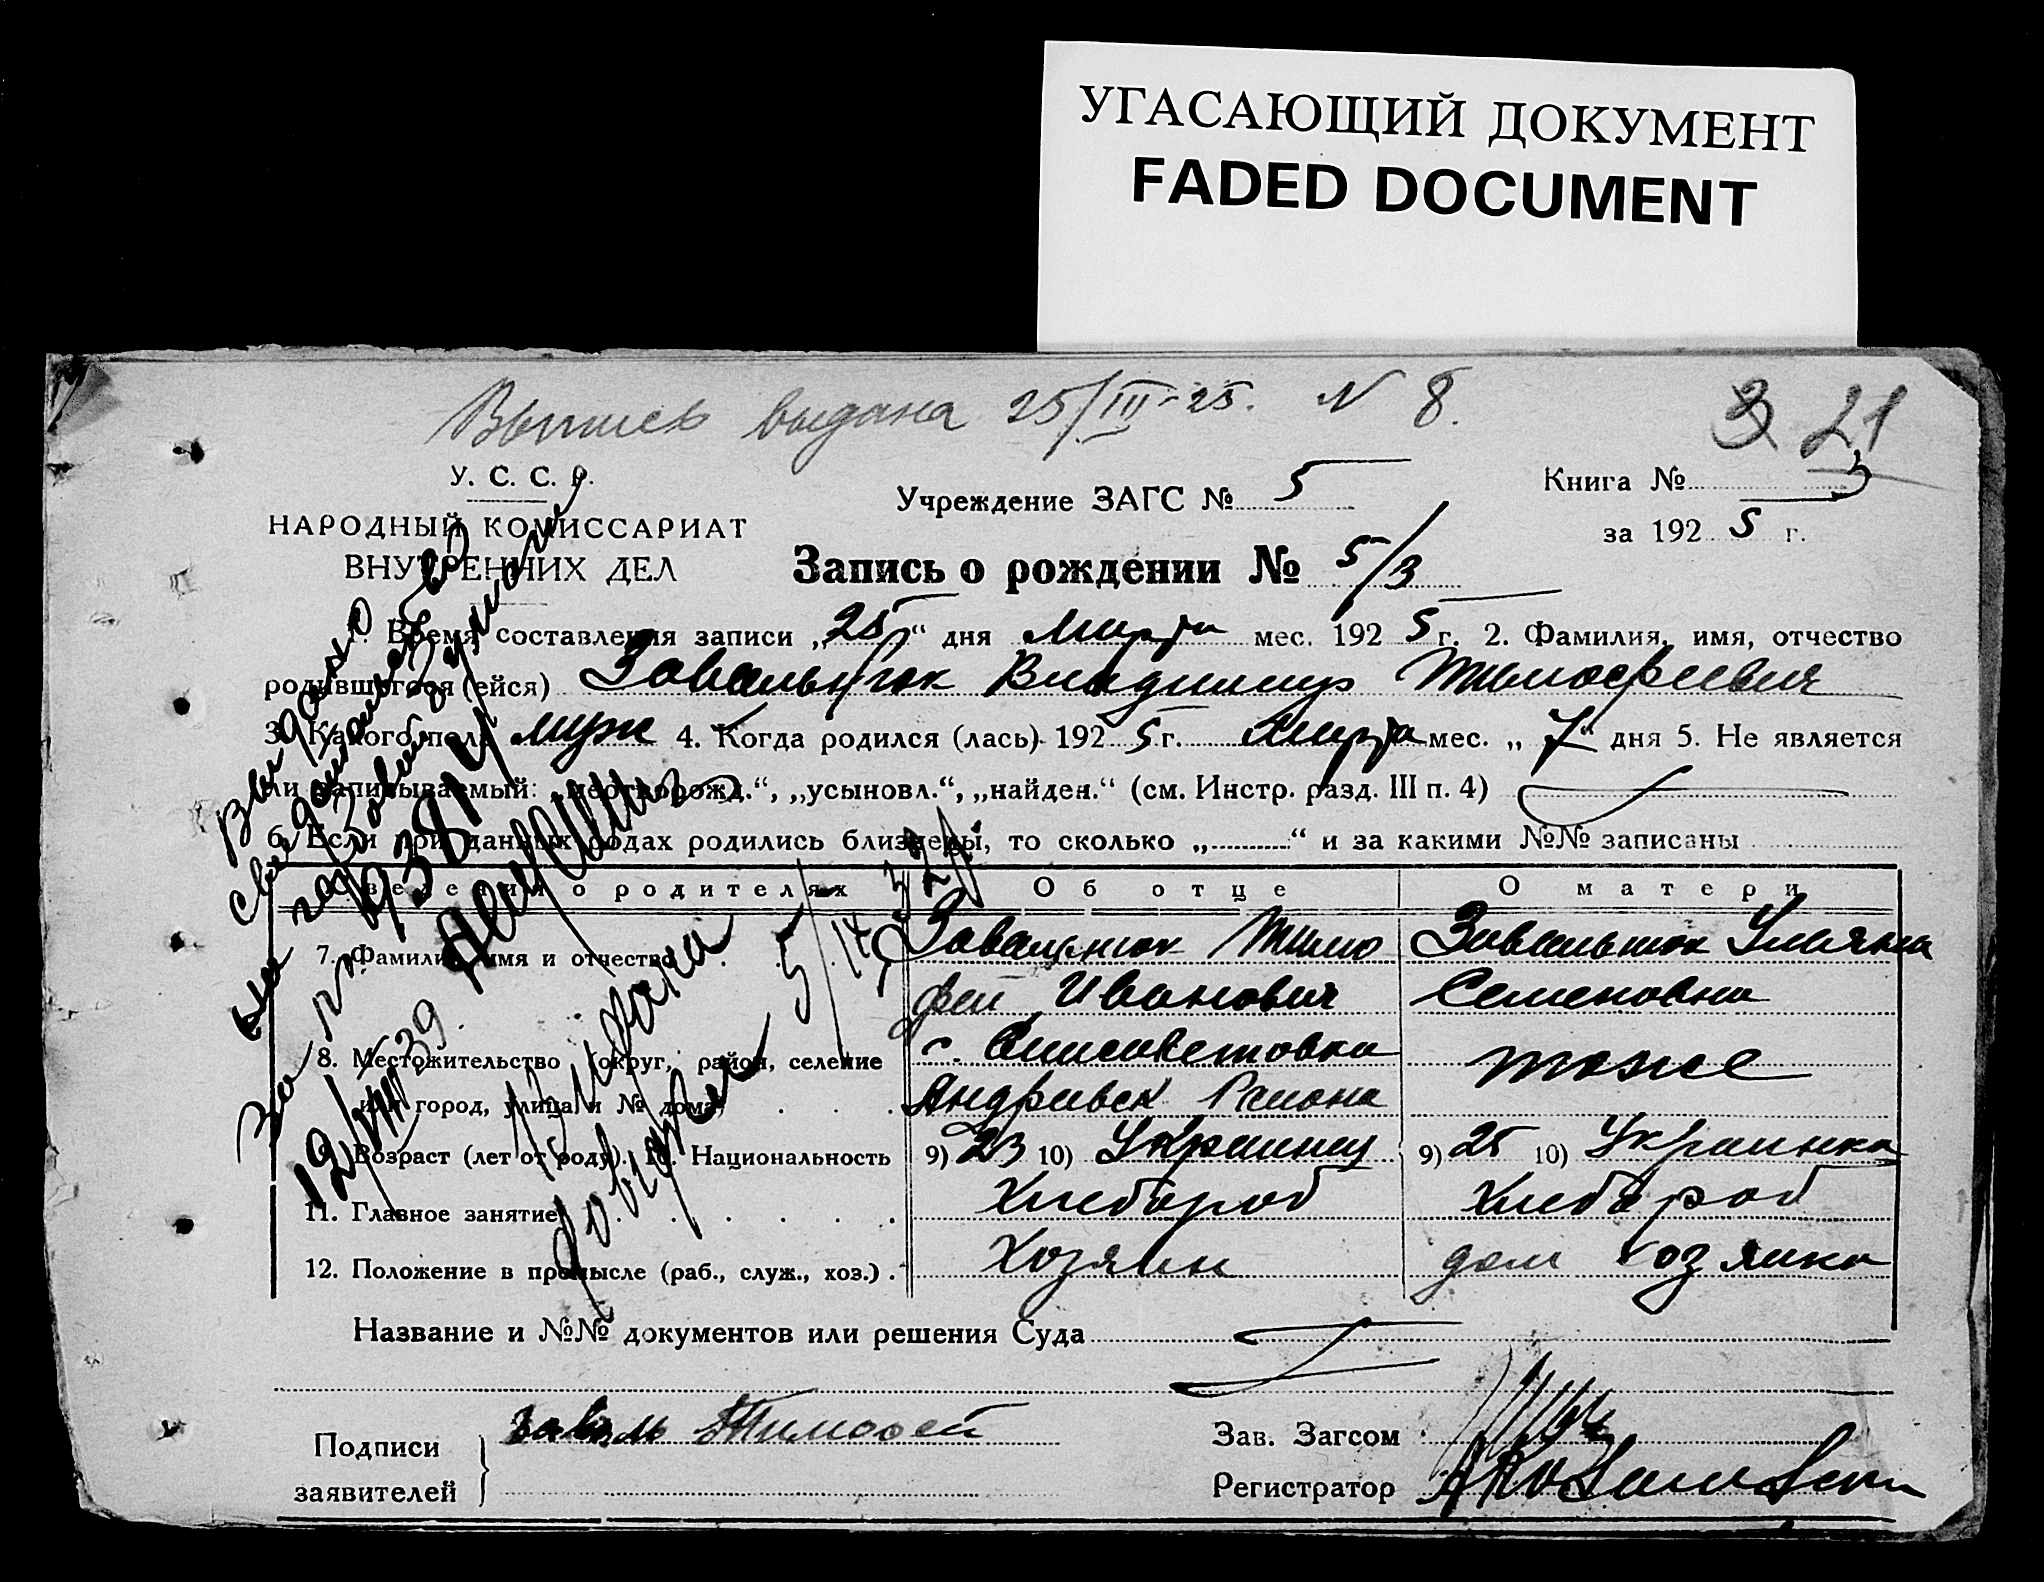 УГАСАЮЩИЙ ДОКУМЕНТ
FADED DOCUMENT
Выпись выдана 25/III-25. N 8.
21
У. С. С. Р.
НАРОДНЫЙ КОМИССАРИАТ
ВНУТРЕННИХ ДЕЛ
Учреждение ЗАГС № 5
Книга № 3
за 1925 г.
Запись о рождении № 5/3
1. Время составления записи „25“ дня Марта мес. 1925 г. 2. Фамилия, имя, отчество
родившегося (ейся) Завальнюк Владимир Тимофеевич
3. Какого пола муж 4. Когда родился (лась) 1925 г. Марта мес. „7“ дня 5. Не является
ли записываемый: „мертворожд.“, „усыновл.“, „найден.“ (см. Инстр. разд. III п. 4)
6. Если при данных родах родились близнецы, то сколько „ “ и за какими №№ записаны
Сведения о родителях
Об отце
О матери
7. Фамилия, имя и отчество
Завальнюк Тимо
фей Иванович
Завальнюк Ульяна
Семеновна
8. Местожительство (округ, район, селение
или город, улица и № дома)
с. Елисаветовка
Андриевск Района
тоже
9. Возраст (лет от роду). 10. Национальность
9) 23 10) Украинец
9) 25 10) Украинка
11. Главное занятие
Хлебороб
Хлебороб
12. Положение в промысле (раб., служ., хоз.)
Хозяин
дом хозяйка
Название и №№ документов или решения Суда
Подписи
заявителей
Заваль Тимофей
Зав. Загсом
Регистратор
Выдано
свидетельство
19/VIII 39.